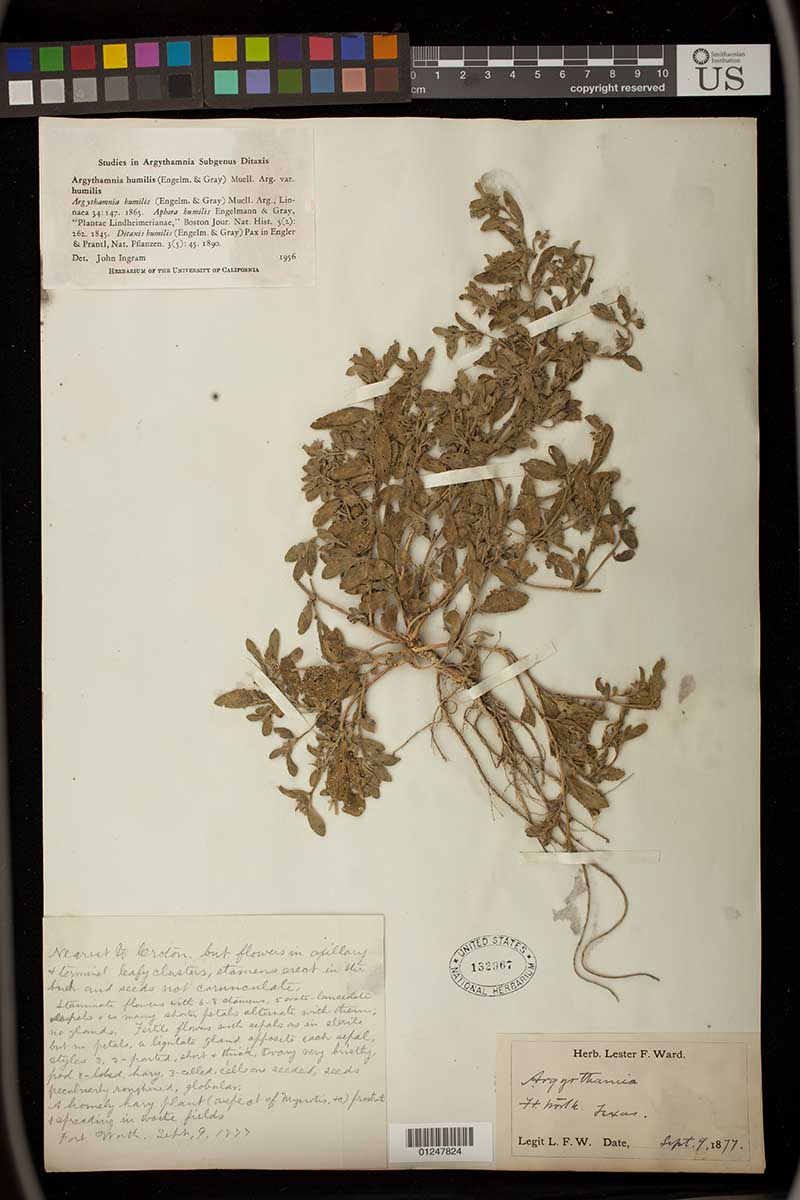 0 1 2 3 4 5 6 7 8 9 10
cm
copyright reserved
Smithsonian
Institution
US
Studies in Argythamnia Subgenus Ditaxis
Argythamnia humilis (Engelm. & Gray) Muell. Arg. var.
humilis
Argythamnia humilis (Engelm. & Gray) Muell. Arg., Lin-
naea 34: 147. 1865. Aphora humilis Engelmann & Gray,
"Plantae Lindheimerianae," Boston Jour. Nat. Hist. 5(2):
262. 1845. Ditaxis humilis (Engelm. & Gray) Pax in Engler
& Prantl, Nat. Pflanzen. 3(5): 45. 1890.
Det. John Ingram 1956
HERBARIUM OF THE UNIVERSITY OF CALIFORNIA
Nearest to Croton, but flowers in axillary
& terminal leafy clusters, stamens erect in the
bud and seeds not carunculate.
Staminate flowers with 6-8 stamens, 5 ovate-lanceolate
sepals & as many shorter petals alternate with them,
no glands. Fertile flowers with sepals as in sterile
but no petals, a ligulate gland opposite each sepal,
styles 3, 2-parted, short & thick, Ovary very bristly,
pod 3-lobed, hairy, 3-celled, cells one seeded, seeds
peculiarly roughened, globular.
A homely hary plant (aspect of Myosotis, &c) prostrate
& spreading in waste fields
Fort Worth. Sept, 9, 1877
UNITED STATES
132067
NATIONAL HERBARIUM
01247824
Herb. Lester F. Ward.
Argyothamia
Ft. Worth. Texas.
Legit L. F. W. Date, Sept. 9, 1877.